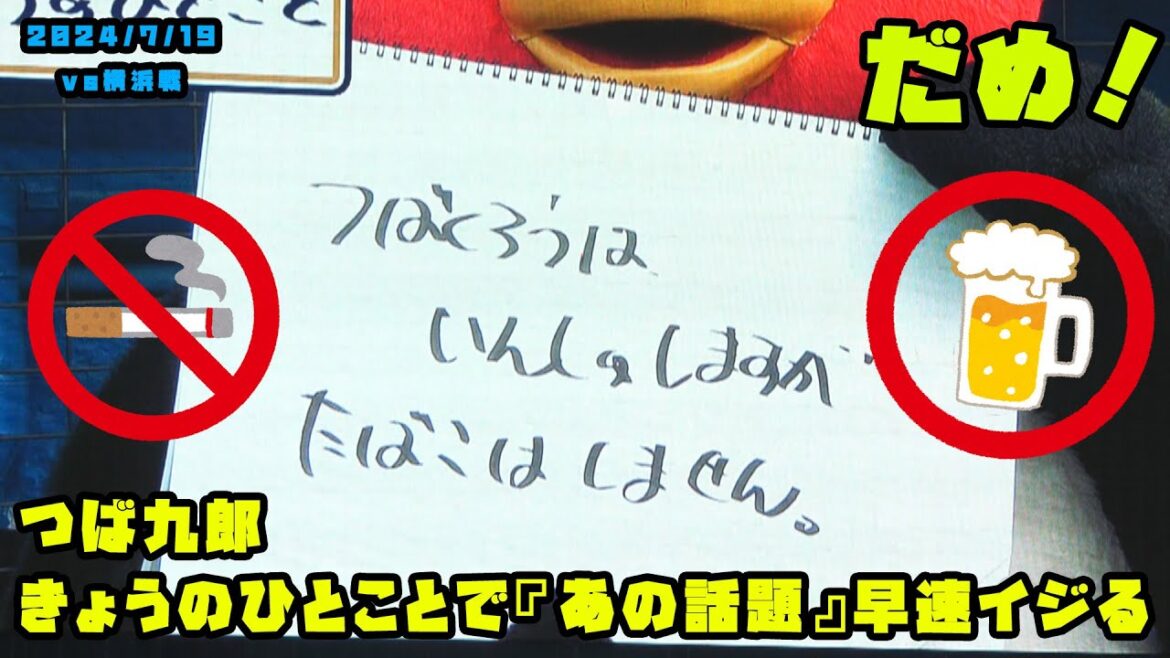 2024/7/19
vs横浜戦
だめ！
つばくろうは
いんしゅしますが
たばこはしません。
つば九郎
きょうのひとことで『あの話題』早速イジる